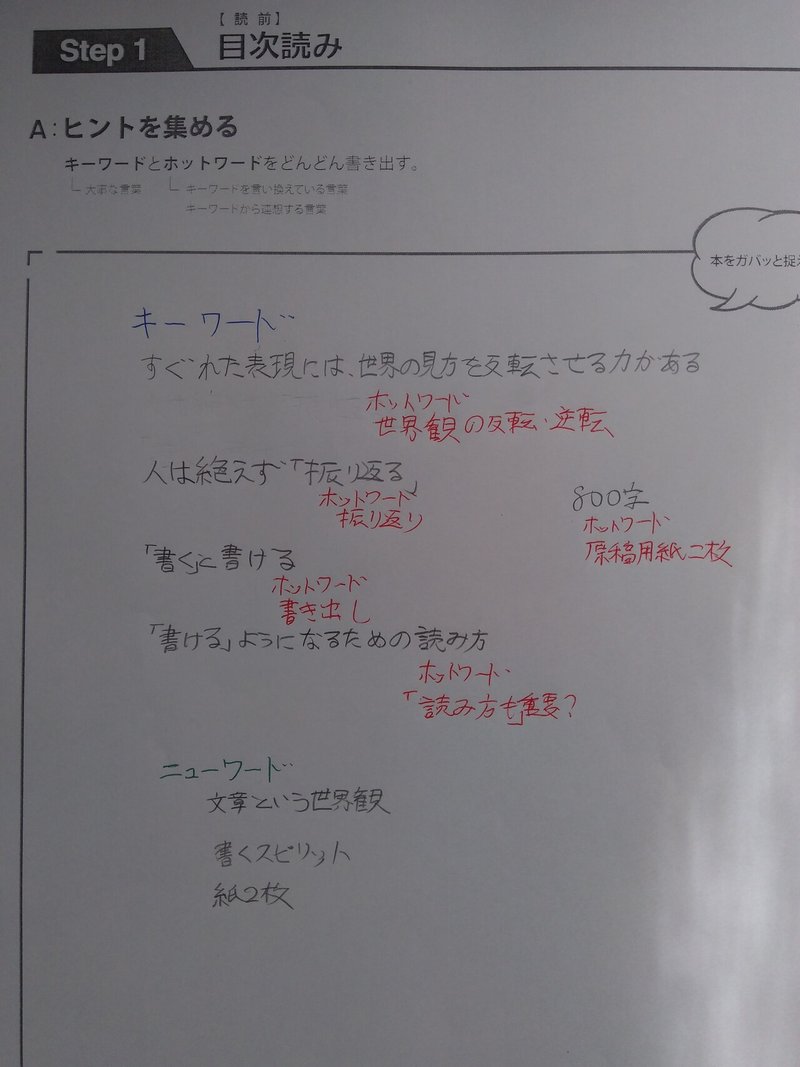 【読前】
Step 1
目次読み
A:ヒントを集める
キーワードとホットワードをどんどん書き出す。
大事な言葉
キーワードを言い換えている言葉
キーワードから連想する言葉
本をガバッと捉え
キーワード
すぐれた表現には、世界の見方を反転させる力がある
ホットワード
世界観の反転・逆転
人は絶えず「振り返る」
ホットワード
振り返り
800字
ホットワード
原稿用紙二枚
「書く」と書ける
ホットワード
書き出し
「書ける」ようになるための読み方
ホットワード
「読み方も」重要?
ニューワード
文章という世界観
書くスピリット
紙2枚